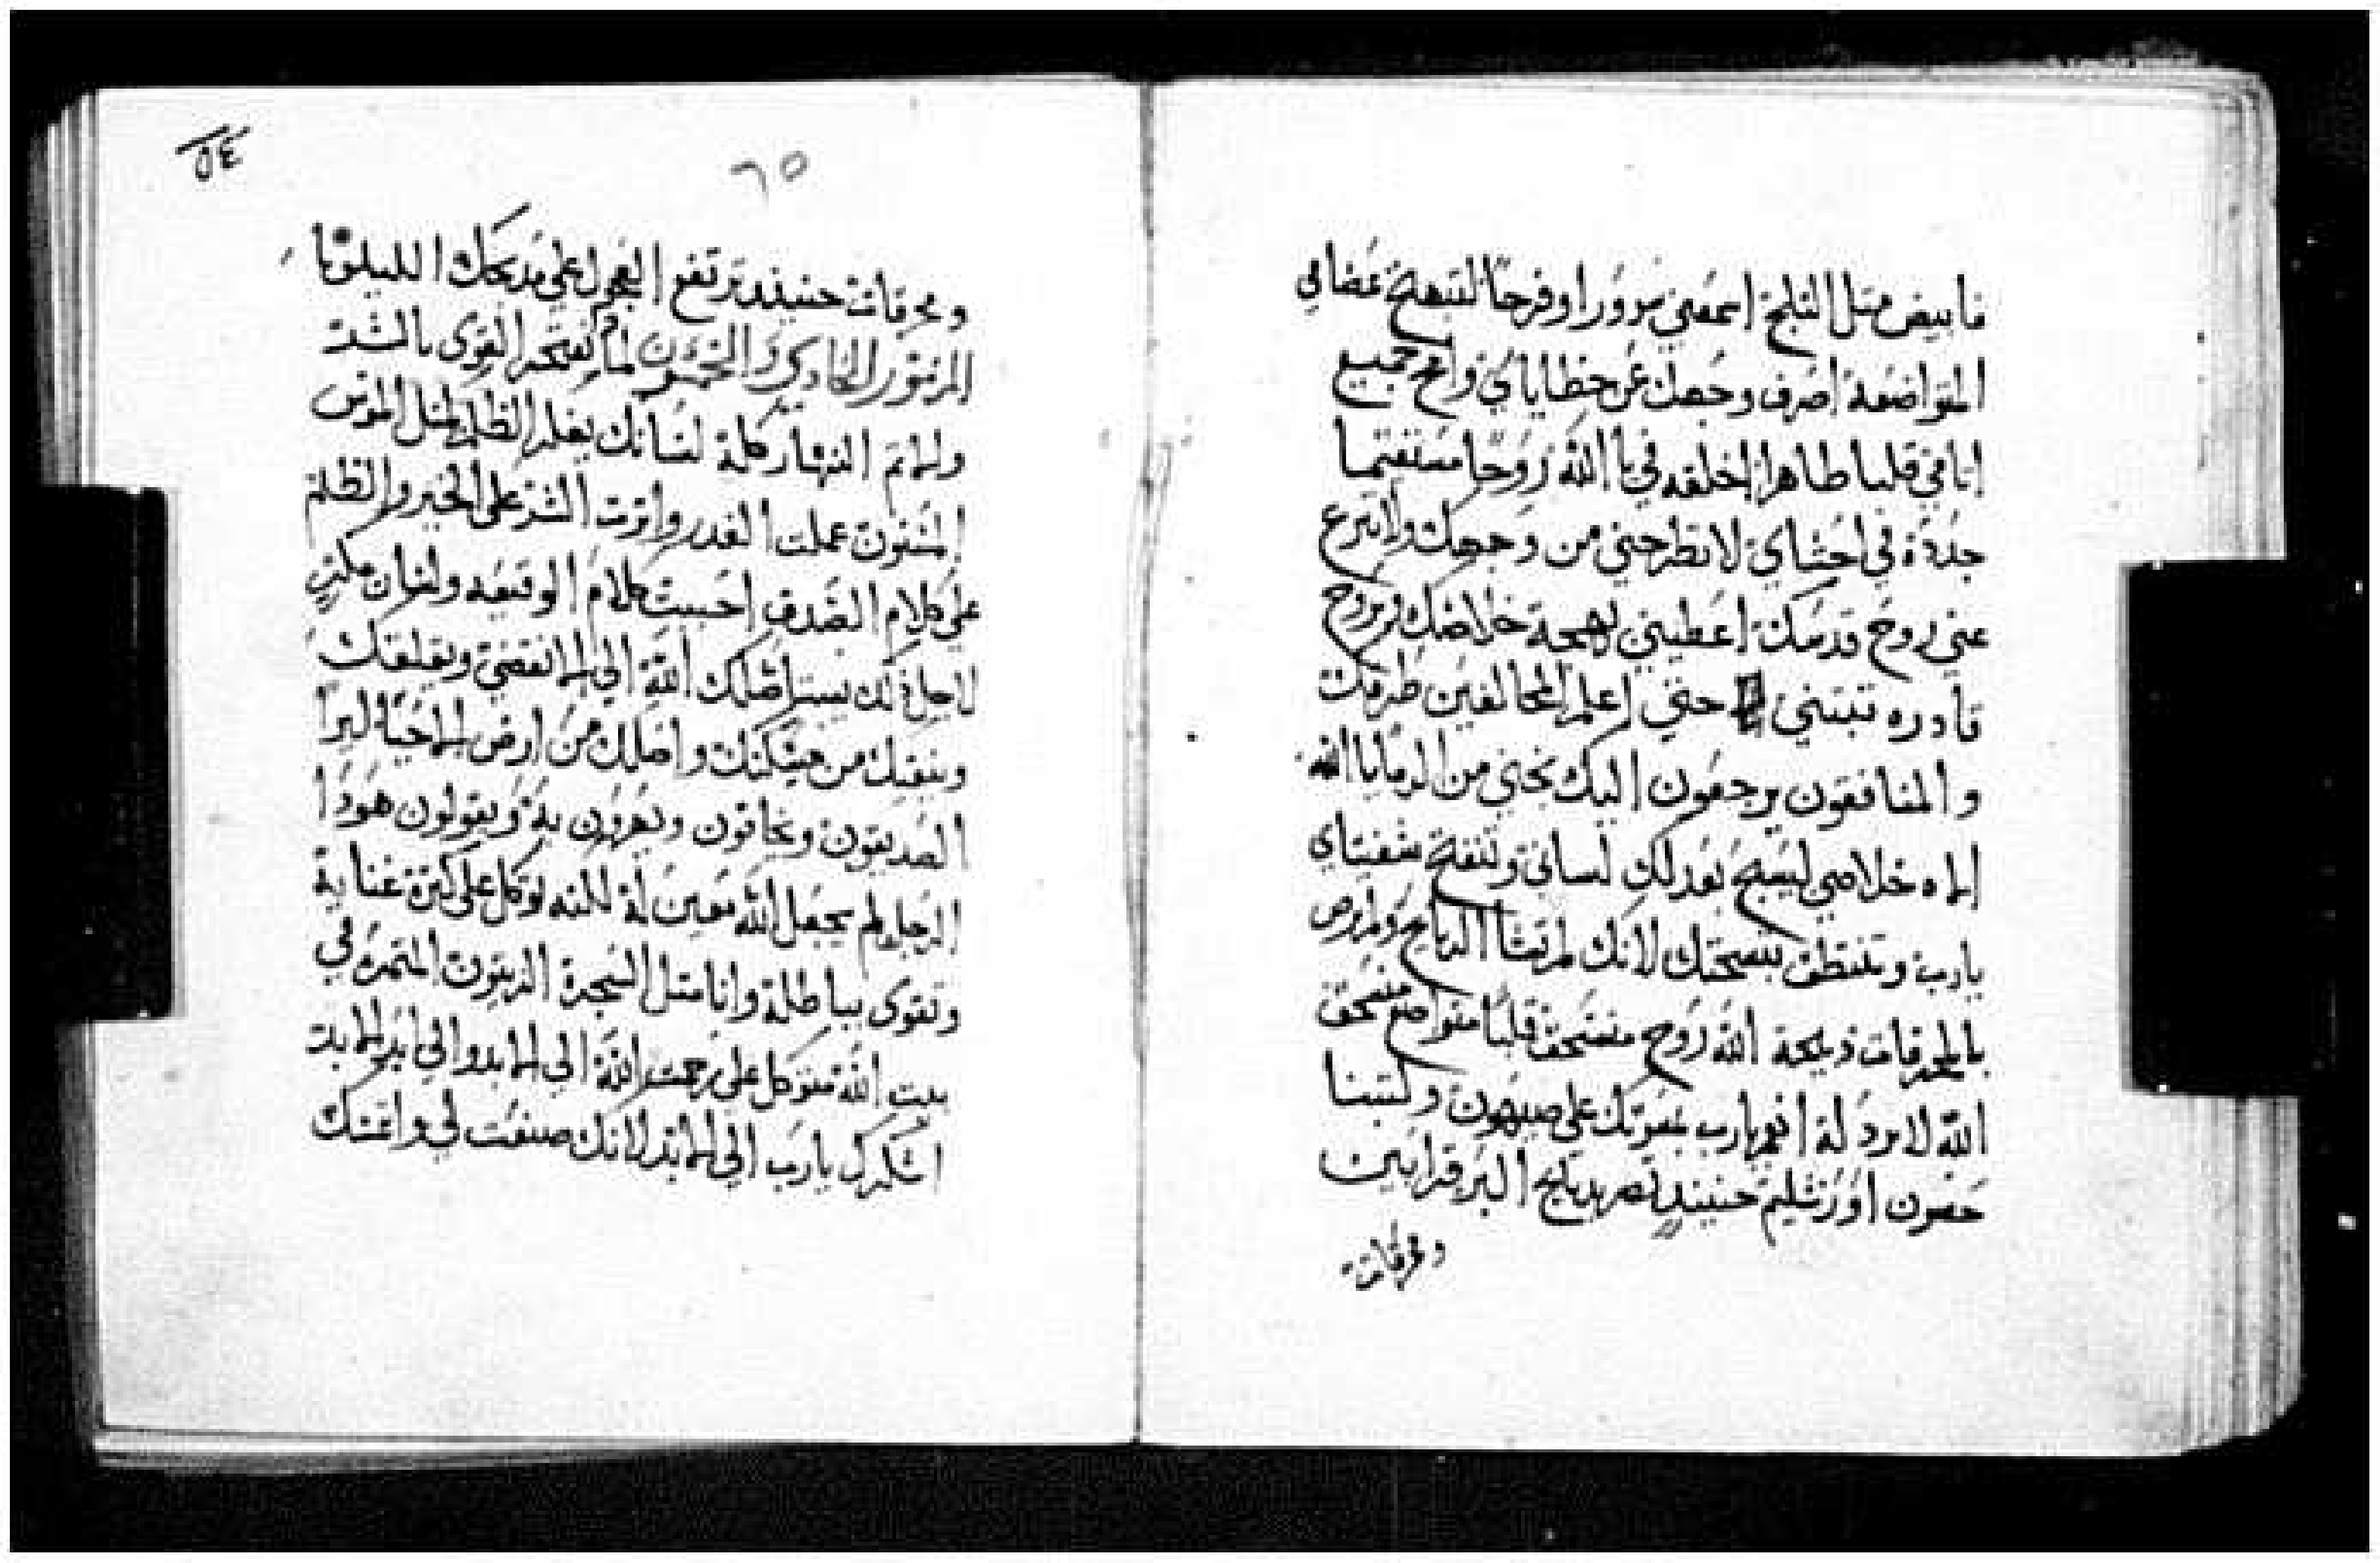 فابيض متل التلج اسمعني سرورا وفرحا لتبتهج عضامي
المتواضعة اصرف وجهك عن خطاياي وامح جميع
اتامي قلبا طاهرا اخلقه في يا الله روحا مستقيما
جدده في احشاي لا تطرحني من وجهك ولا تنزع
عني روح قدسك اعطيني بهجة خلاصك وبروح
قادره تبتني حتي اعلم المخالفين طرقك
والمنافقون يرجعون اليك نجني من الدما يا الله
اله خلاصي ليسبح بعدلك لساني وتنفتح شفتاي
يارب وتنطق بتسبحتك لانك لم تشا الدبايح ولم ترض
بالمحرقات دبيحة الله روح منسحق قلبا متواضع منسحق
الله لا يرد له انعم يارب بمعونتك علي صيهون ولتبنا
حصون اورشليم حينيد تصر بدبايح البر قرابين
ومحرقات
٥٤
٦٥
ومحرقات حينيد ترتفع العجول علي مدبحك الليلويا
المزمور الحادي والخمسون لماذا تفتخر القوي بالشر
ولاتم النهار كلة لسانك يعلم الظلم متل الموس
المسنون عملت الغدر واترت الشر علي الخير والظلم
علي كلام الصدق احببت كلام الوقيعه ولسان مكر
لاجل ذلك يستاصلك الله الي الانقضي ويقلقك
وينقلك من مسكنك واصلك من ارض الاحيا ليرا
الصديقون ويخافون ويهزون به ويقولون هودا
الرجل لم يجعل الله معين له لاكنه توكل علي كترة غنايه
وتقوي بباطله وانا متل الشجرة الزيتون المتمره في
بيت الله متوكل علي رحمت الله الي الابد والي ابد الابد
اشكرك يارب الي الابد لانك صنعت لي واتمسك